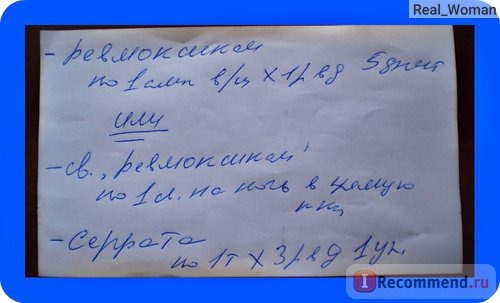 Real_Woman
- Ревмоксикам
по 1 амп в/м х 1 р в д 5 дней
или
- св. "Ревмоксикам"
по 1 с. на ночь в прямую
кку
- Серрата
по 1т х 3 р в д 1 уп.
I Recommend.ru